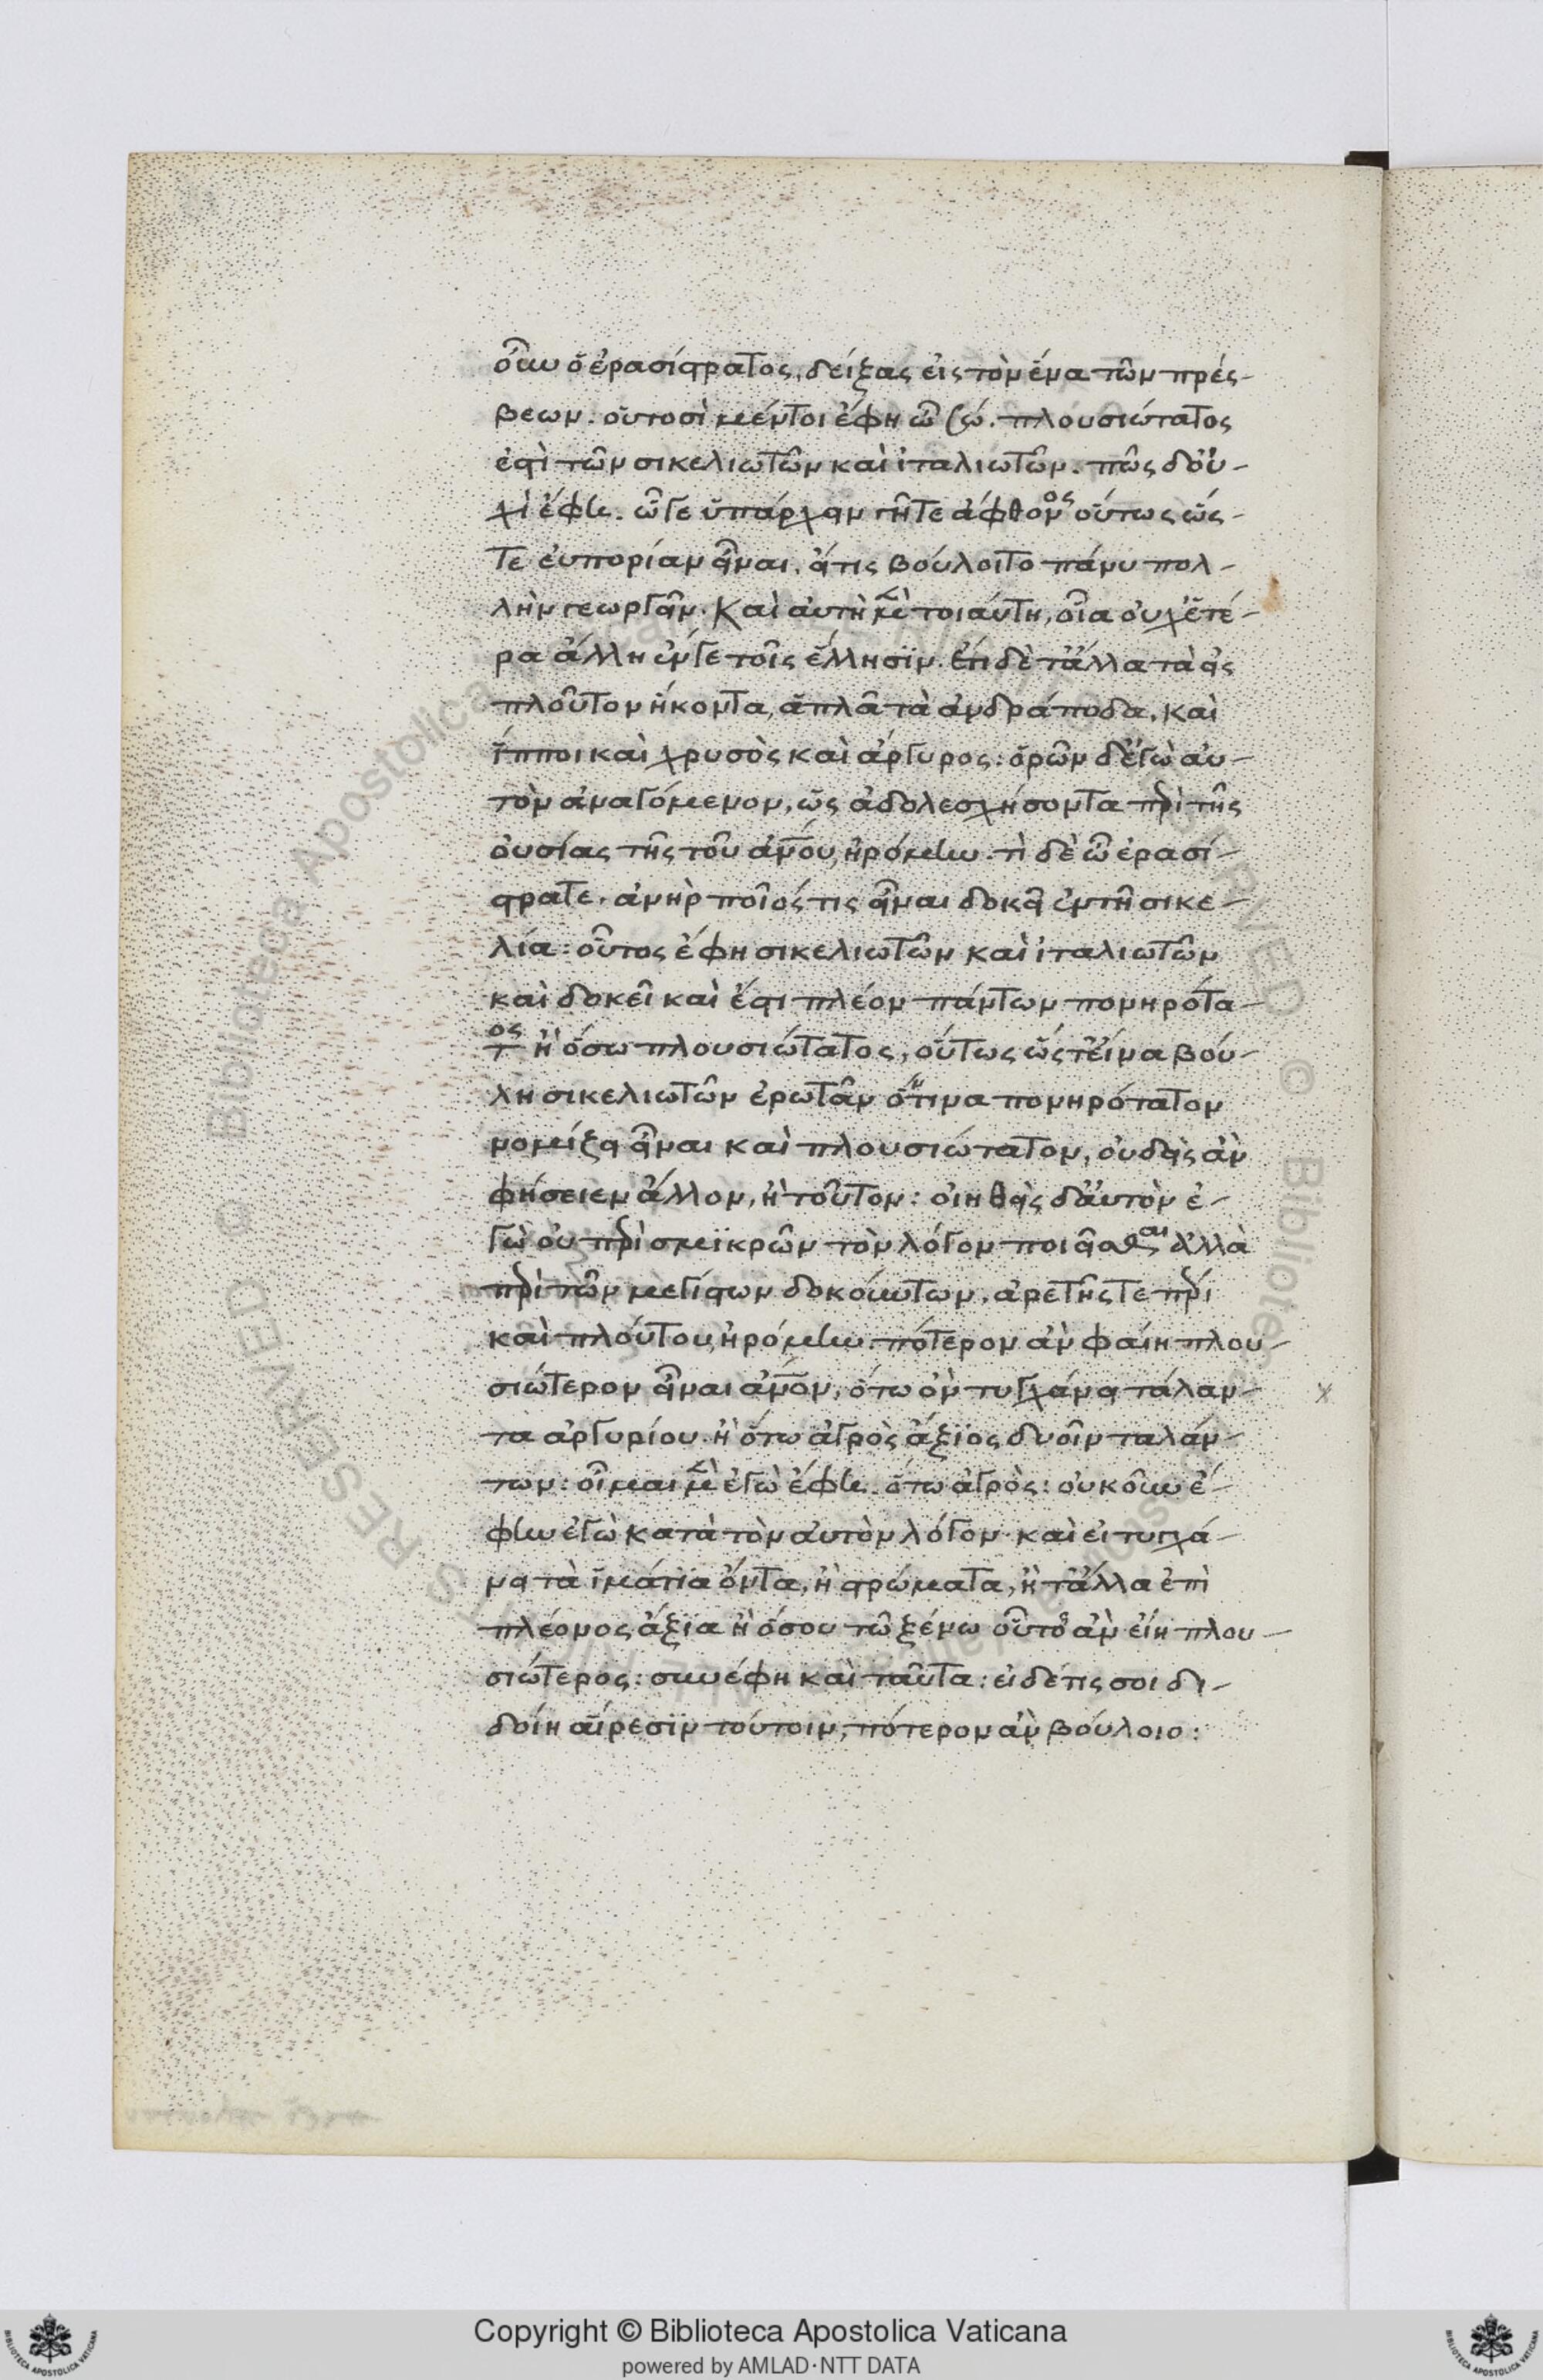 οὖν ὁ ἐρασίστρατος, δείξας εἰς τὸν ἕνα τῶν πρέσ-
βεων. οὑτοσὶ μέντοι ἔφη ὦ σώ. πλουσιώτατος
ἐστὶ τῶν σικελιωτῶν καὶ ἰταλιωτῶν. πῶς δ' οὐ-
χὶ ἔφη. ὧ γε ὑπάρχειν γῆ τε ἄφθονος οὕτως ὥσ-
τε εὐπορίαν εἶναι, εἴ τις βούλοιτο πάνυ πολ-
λὴν γεωργεῖν. καὶ αὐτὴ μὲν τοιαύτη, οἵα οὐχ ἑτέ-
ρα ἄλλη ἔν γε τοῖς ἕλλησιν. ἔτι δὲ τἆλλα τὰ εἰς
πλοῦτον ἥκοντα, ἁπλᾶ τὰ ἀνδράποδα, καὶ
ἵπποι καὶ χρυσὸς καὶ ἄργυρος: ὁρῶν δ' ἐγὼ αὐ-
τὸν ἀναγόμενον, ὡς ἀδολεσχήσοντα περὶ τῆς
οὐσίας τῆς τοῦ ἀνου, ἠρόμην. τὶ δὲ ὦ ἐρασί-
στρατε, ἀνὴρ ποῖός τις εἶναι δοκεῖ ἐν τῆ σικε-
λία: οὗτος ἔφη σικελιωτῶν καὶ ἰταλιωτῶν
καὶ δοκεῖ καὶ ἔστι πλέον πάντων πονηρότα-
τος ἢ ὅσω πλουσιώτατος, οὕτως ὥστ' εἴ τινα βού-
λη σικελιωτῶν ἐρωτᾶν ὅντινα πονηρότατον
νομίζει εἶναι καὶ πλουσιώτατον, οὐδεὶς ἂν
φήσειεν ἄλλον, ἢ τοῦτον: οἰηθεὶς δ' αὐτὸν ἐ-
γὼ οὐ περὶ σμικρῶν τὸν λόγον ποιεῖσθαι ἀλλὰ
περὶ τῶν μεγίστων δοκούντων, ἀρετῆς τε περί
καὶ πλούτου, ἠρόμην. πότερον ἂν φαίη πλου-
σιώτερον εἶναι ἀνον, ὅτω ὂν τυγχάνει τάλαν-
τα ἀργυρίου. ἢ ὅτω ἀγρὸς ἄξιος δυοῖν ταλάν-
των: οἶμαι μὲν ἐγὼ ἔφη. ὅτω ἀγρὸς: οὐκοῦν ἔ-
φην ἐγὼ κατὰ τὸν αὐτὸν λόγον καὶ εἰ τυγχά-
νει τὰ ἱμάτια ὄντα, ἢ στρώματα, ἢ τἆλλα ἐπὶ
πλέονος ἄξια ἢ ὅσου τῶ ξένω οὗτος ἂν εἴη πλου-
σιώτερος: συνέφη καὶ ταῦτα: εἰ δέ τις σοι δι-
δοίη αἵρεσιν τούτοιν, πότερον ἂν βούλοιο:
Copyright © Biblioteca Apostolica Vaticana
powered by AMLAD·NTT DATA